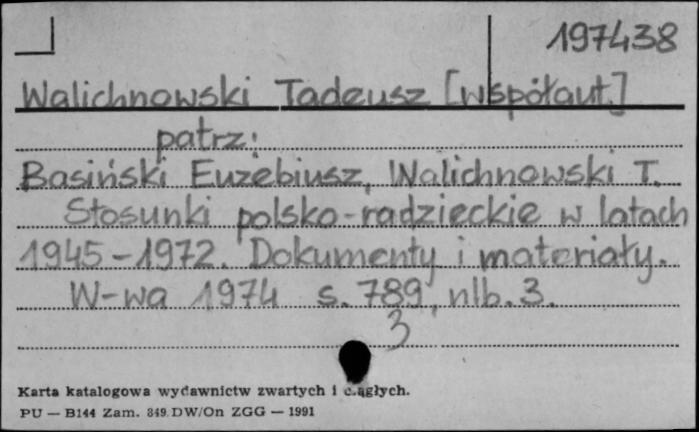 197438
Walichnowski Tadeusz [współaut.]
patrz:
Basiński Euzebiusz, Walichnowski T.
Stosunki polsko-radzieckie w latach
1945-1972. Dokumenty i materiały.
W-wa 1974 s. 789, nlb. 3.
3
Karta katalogowa wydawnictw zwartych i ciągłych.
PU — B144 Zam. 849 DW/On ZGG — 1991